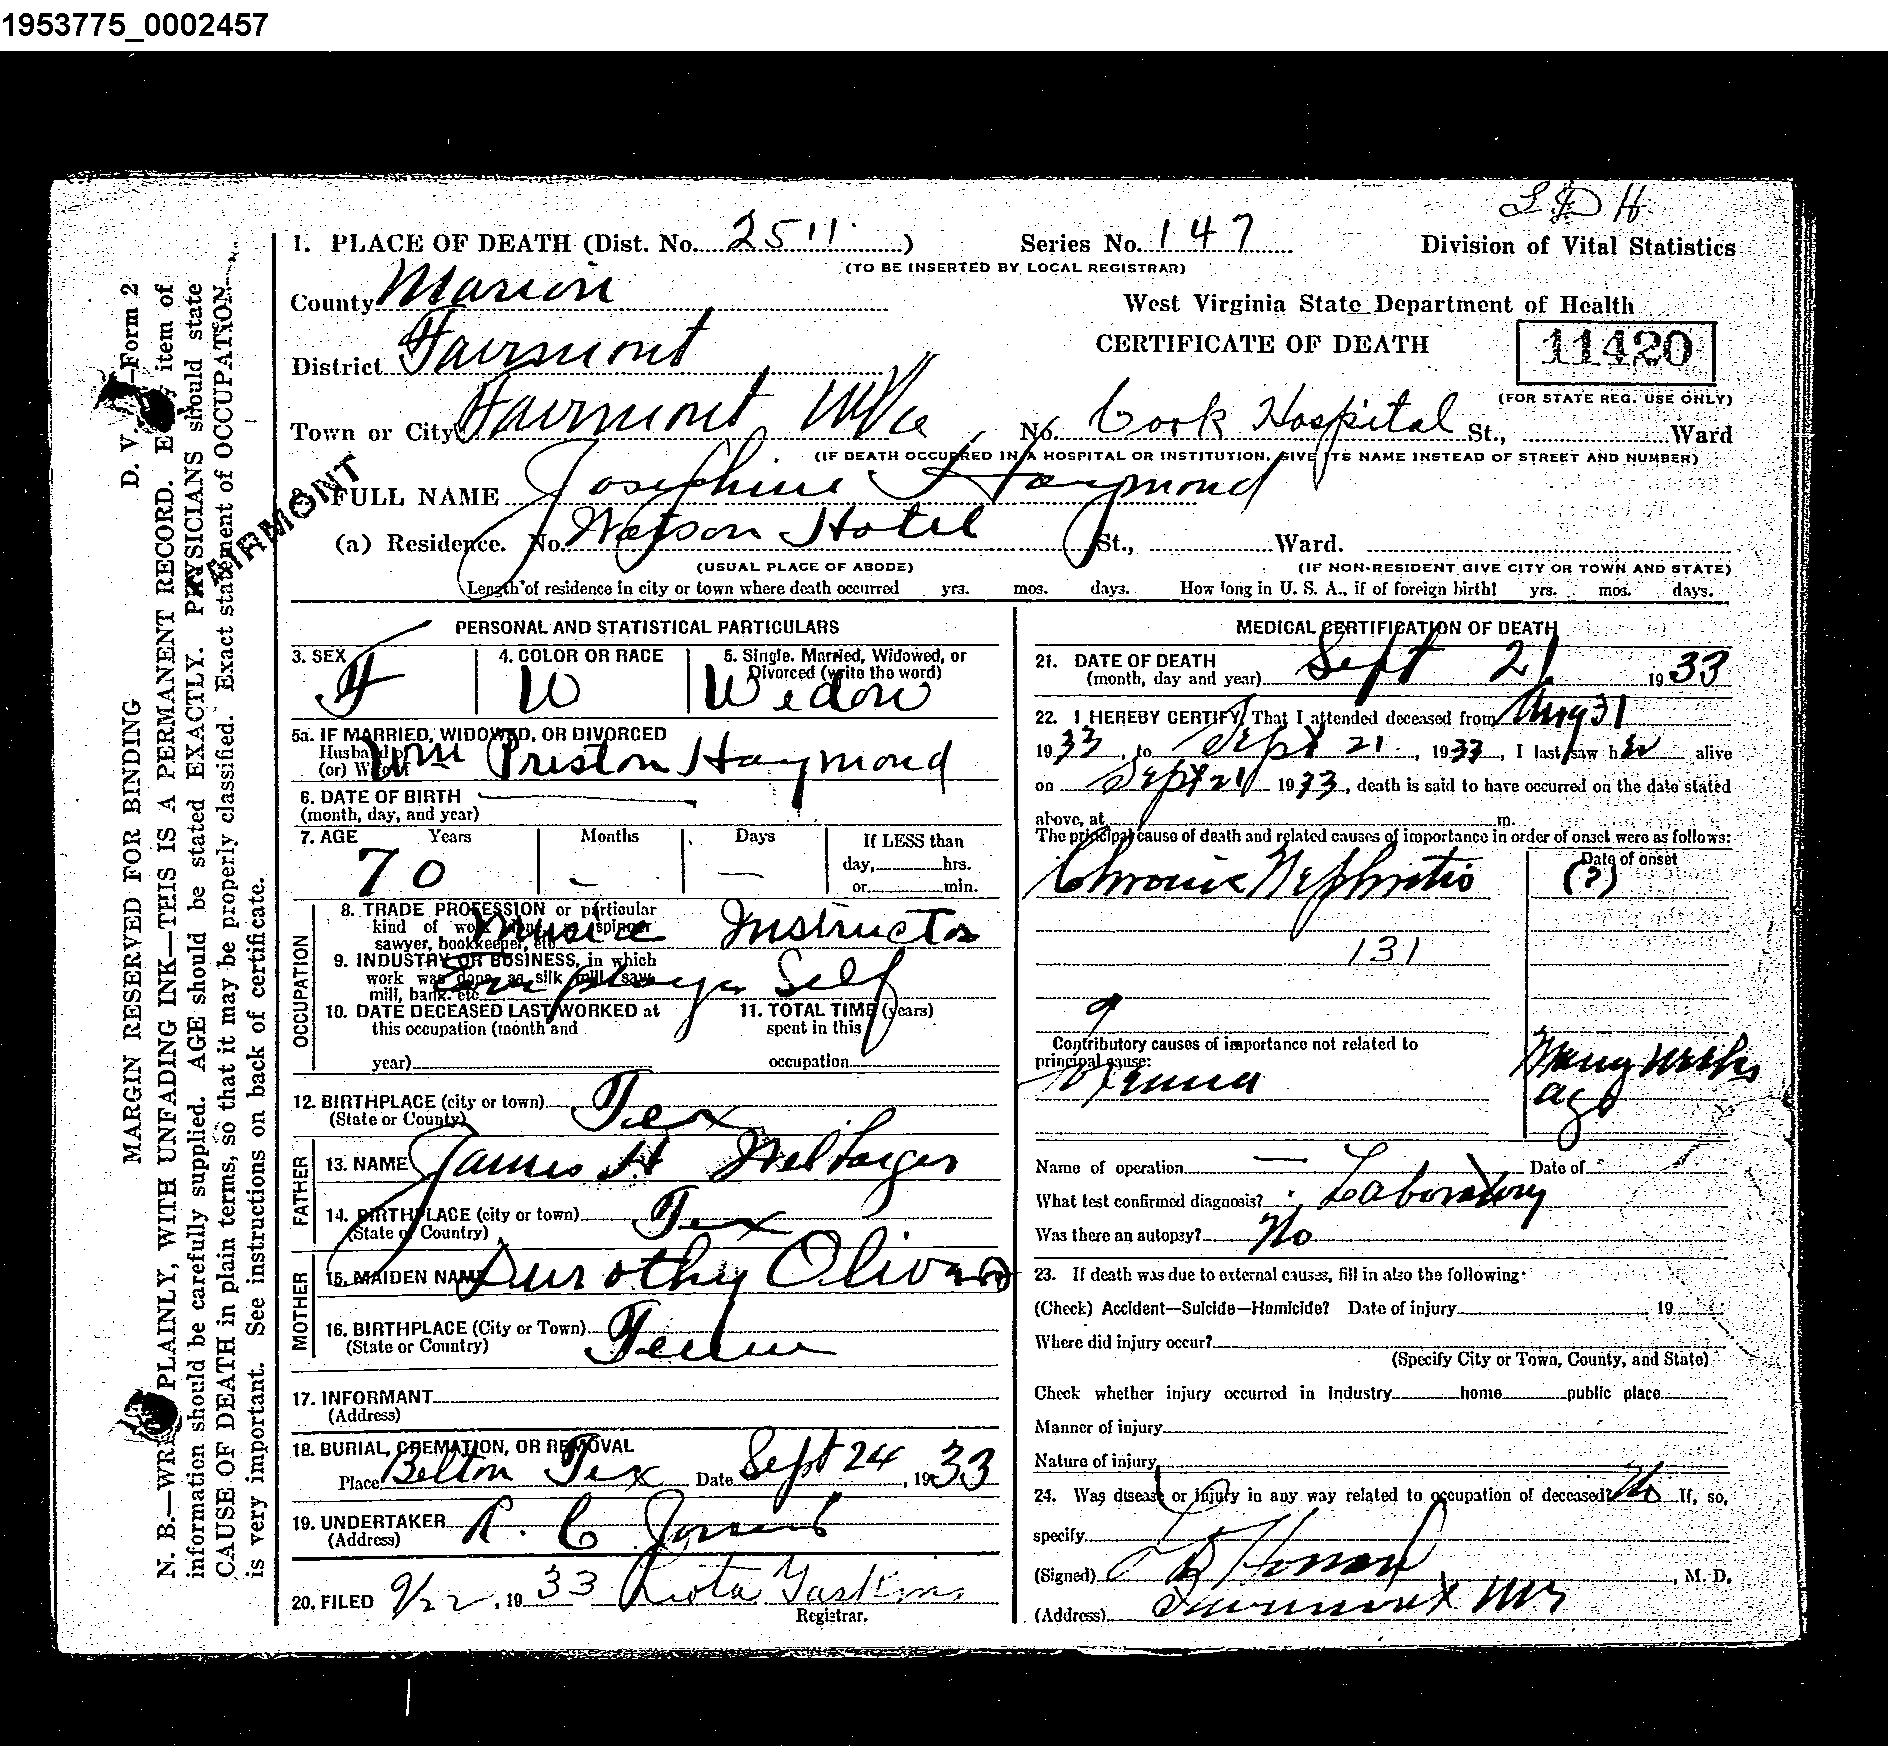 1953775_0002457
S D H
1. PLACE OF DEATH (Dist. No. 2511 ) Series No. 147 Division of Vital Statistics
(TO BE INSERTED BY LOCAL REGISTRAR)
County Marion West Virginia State Department of Health
CERTIFICATE OF DEATH 11420
District Fairmont
(FOR STATE REG. USE ONLY)
Town or City Fairmont W Va No. Cook Hospital St., Ward
(IF DEATH OCCURRED IN A HOSPITAL OR INSTITUTION, GIVE ITS NAME INSTEAD OF STREET AND NUMBER)
FULL NAME Josephine Haymond
FAIRMONT
(a) Residence. No. Watson Hotel St., Ward.
(USUAL PLACE OF ABODE) (IF NON-RESIDENT GIVE CITY OR TOWN AND STATE)
Length of residence in city or town where death occurred yrs. mos. days. How long in U. S. A., if of foreign birth? yrs. mos. days.
PERSONAL AND STATISTICAL PARTICULARS
3. SEX 4. COLOR OR RACE 5. Single, Married, Widowed, or
Divorced (write the word)
F W Widow
5a. IF MARRIED, WIDOWED, OR DIVORCED
Husband of
(or) Wife of Wm Preston Haymond
6. DATE OF BIRTH
(month, day, and year)
7. AGE Years Months Days If LESS than
day, hrs.
or min.
70 — —
OCCUPATION
8. TRADE PROFESSION or particular
kind of work done, as spinner
sawyer, bookkeeper, etc. Music Instructor
9. INDUSTRY OR BUSINESS, in which
work was done, as silk mill, saw
mill, bank, etc. Employer Self
10. DATE DECEASED LAST WORKED at 11. TOTAL TIME (years)
this occupation (month and spent in this
year) occupation
12. BIRTHPLACE (city or town) Tex
(State or County)
FATHER
13. NAME James H
14. BIRTHPLACE (city or town) Tex
(State or Country)
MOTHER
15. MAIDEN NAME Durothy
16. BIRTHPLACE (City or Town) Tenn
(State or Country)
17. INFORMANT
(Address)
18. BURIAL, CREMATION, OR REMOVAL
Place Belton Tex Date Sept 24, 1933
19. UNDERTAKER R. C. Jones
(Address)
20. FILED 9/22, 1933
Registrar.
MEDICAL CERTIFICATION OF DEATH
21. DATE OF DEATH
(month, day and year) Sept 21 1933
22. I HEREBY CERTIFY, That I attended deceased from Aug 31
1933, to Sept 21, 1933, I last saw her alive
on Sept 21 1933, death is said to have occurred on the date stated
above, at m.
The principal cause of death and related causes of importance in order of onset were as follows:
Date of onset
Chronic Nephritis (?)
131
9
Contributory causes of importance not related to
principal cause:
Uremia Many weeks
ago
Name of operation — Date of
What test confirmed diagnosis? Laboratory
Was there an autopsy? No
23. If death was due to external causes, fill in also the following:
(Check) Accident—Suicide—Homicide? Date of injury 19
Where did injury occur?
(Specify City or Town, County, and State)
Check whether injury occurred in industry home public place
Manner of injury
Nature of injury
24. Was disease or injury in any way related to occupation of deceased? No If, so,
specify
(Signed) , M. D.
(Address) Fairmont W Va
D. V. —Form 2
MARGIN RESERVED FOR BINDING
N. B.—WRITE PLAINLY, WITH UNFADING INK—THIS IS A PERMANENT RECORD. Every item of
information should be carefully supplied. AGE should be stated EXACTLY. PHYSICIANS should state
CAUSE OF DEATH in plain terms, so that it may be properly classified. Exact statement of OCCUPATION
is very important. See instructions on back of certificate.